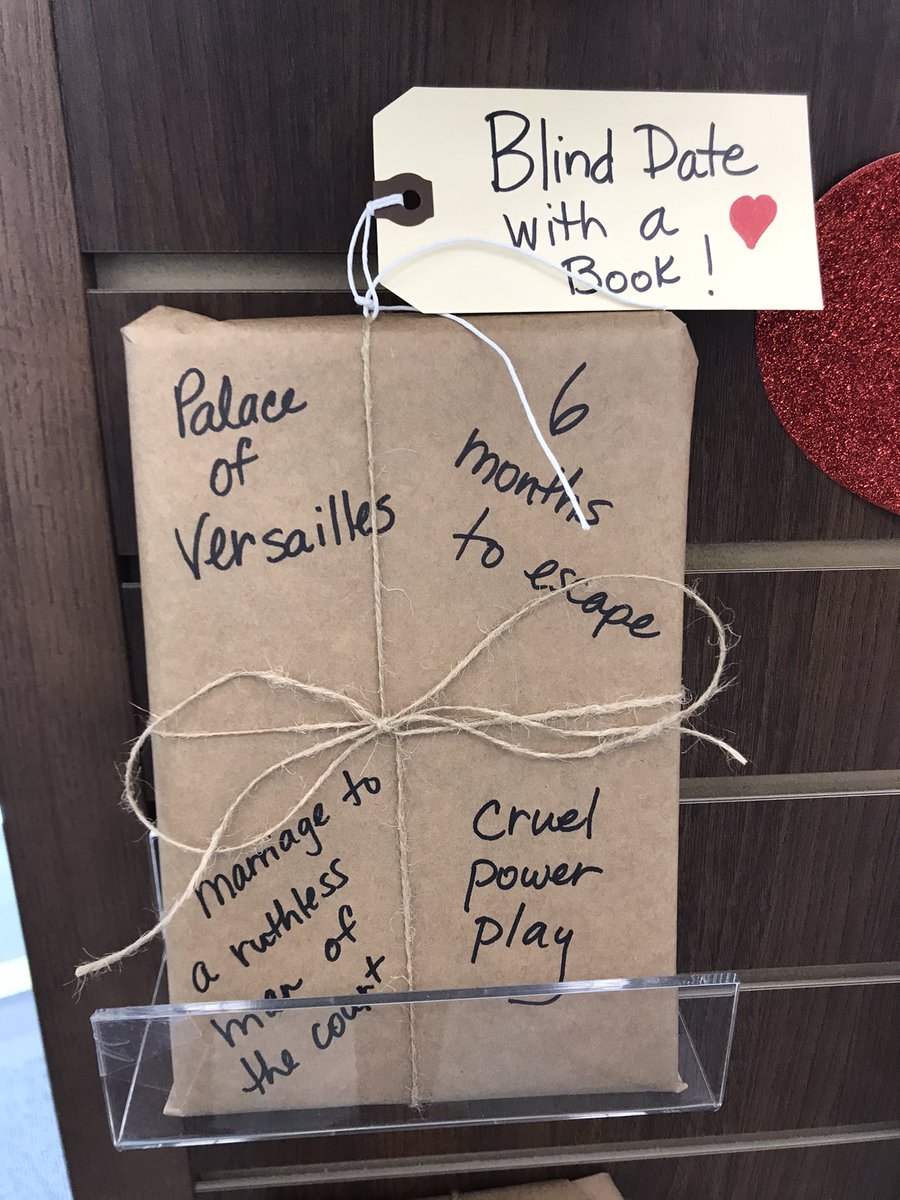 Blind Date
with a
Book!
Palace
of
Versailles
6
months
to escape
Marriage to
a ruthless
man of
the court
Cruel
power
play